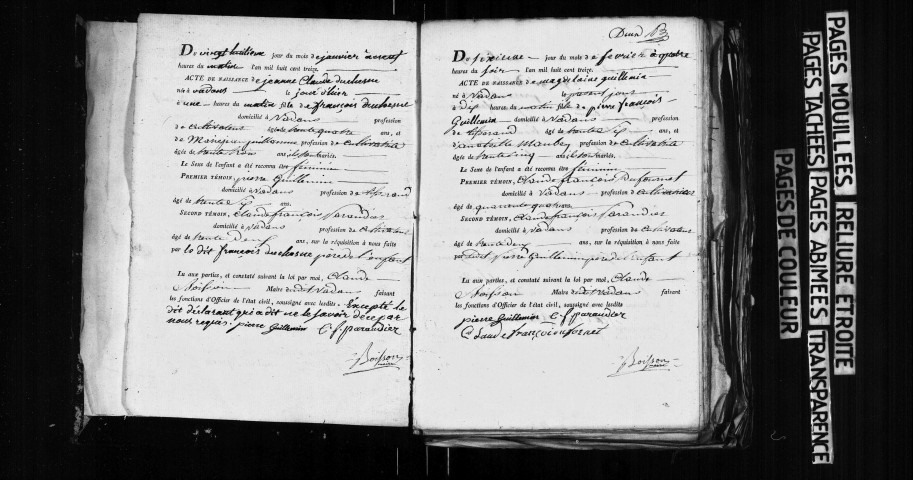 Du vingt huitieme jour du mois de janvier à neuf
heures du matin l'an mil huit cent treize.
ACTE DE NAISSANCE de jeanne Claude duchesne
né à vadans le jour d'hier
à une heures du matin fille de françois duchesne
domicilié à Vadans profession
de cultivateur âgé de trente quatre ans, et
de guillemin profession de cultivatrice
âgée de trente trois ans
Le Sexe de l'enfant a été reconnu être féminin
PREMIER TÉMOIN, pierre Guillemin
domicilié à Vadans profession de tisserand
âgé de trente six ans.
SECOND TÉMOIN, Claude françois Paraudier
domicilié à Vadans profession de cultivateur
âgé de trente deux ans, sur la réquisition à nous faite
par le dit françois duchesne pere de l'enfant
Lu aux parties, et constaté suivant la loi par moi, Claude
Boisson Maire de Vadans faisant
les fonctions d'Officier de l'état civil, soussigné avec lesdits Excepté le
dit déclarant qui a dit ne le savoir de ce par
nous requis. pierre Guillemin C. f. paraudier
Boisson
maire
Deux
Du sixieme jour du mois de fevrier à quatre
heures du soir l'an mil huit cent treize.
ACTE DE NAISSANCE de magdelaine guillemin
né à Vadans le present jour
à dix heures du matin fille de pierre françois
Guillemin domicilié à Vadans profession
de tisserand âgé de trente six ans, et
profession de cultivatrice
âgée de trente cinq ans
Le Sexe de l'enfant a été reconnu être féminin
PREMIER TÉMOIN, Claude françois
domicilié à Vadans profession de cultivateur
âgé de quarante quatre ans.
SECOND TÉMOIN, Claude françois Paraudier
domicilié à Vadans profession de cultivateur
âgé de trente deux ans, sur la réquisition à nous faite
par ledit pierre Guillemin pere de l'enfant
Lu aux parties, et constaté suivant la loi par moi, Claude
Boisson Maire de Vadans faisant
les fonctions d'Officier de l'état civil, soussigné avec lesdits
pierre Guillemin C. f. paraudier
Claude françois
Boisson
maire
PAGES MOUILLEES RELIURE ETROITE
PAGES TACHEES PAGES ABIMEES TRANSPARENCE
PAGES DE COULEUR